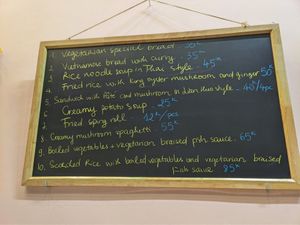 1. Vegetarian special bread 35K
2. Vietnamese bread with curry - 35K
3. Rice noodle soup in Thai style - 45K
4. Fried rice with king oyster mushroom and ginger 50K
5. Sandwich with Pate and mushroom, in Hoian style - 40K/1pc
6. Creamy potato soup - 25K
7. Fried spring roll - 12K/pcs
8. Creamy mushroom spaghetti - 55K
9. Boiled vegetables + vegetarian braised fish sauce - 65K
10. Scorched Rice with boiled vegetables and vegetarian braised
fish sauce 85K